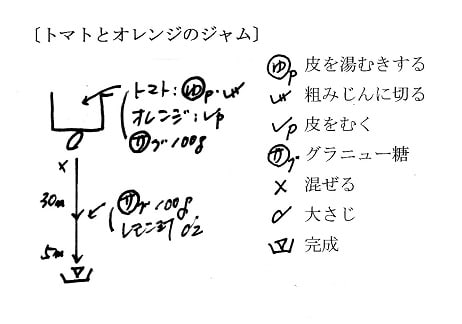 〔トマトとオレンジのジャム〕
トマト:ゆp・
オレンジ:p
サグ100g
×
30m
サグ100g
レモン汁
5m
ゆp 皮を湯むきする
粗みじんに切る
p 皮をむく
サグ グラニュー糖
× 混ぜる
大さじ
完成